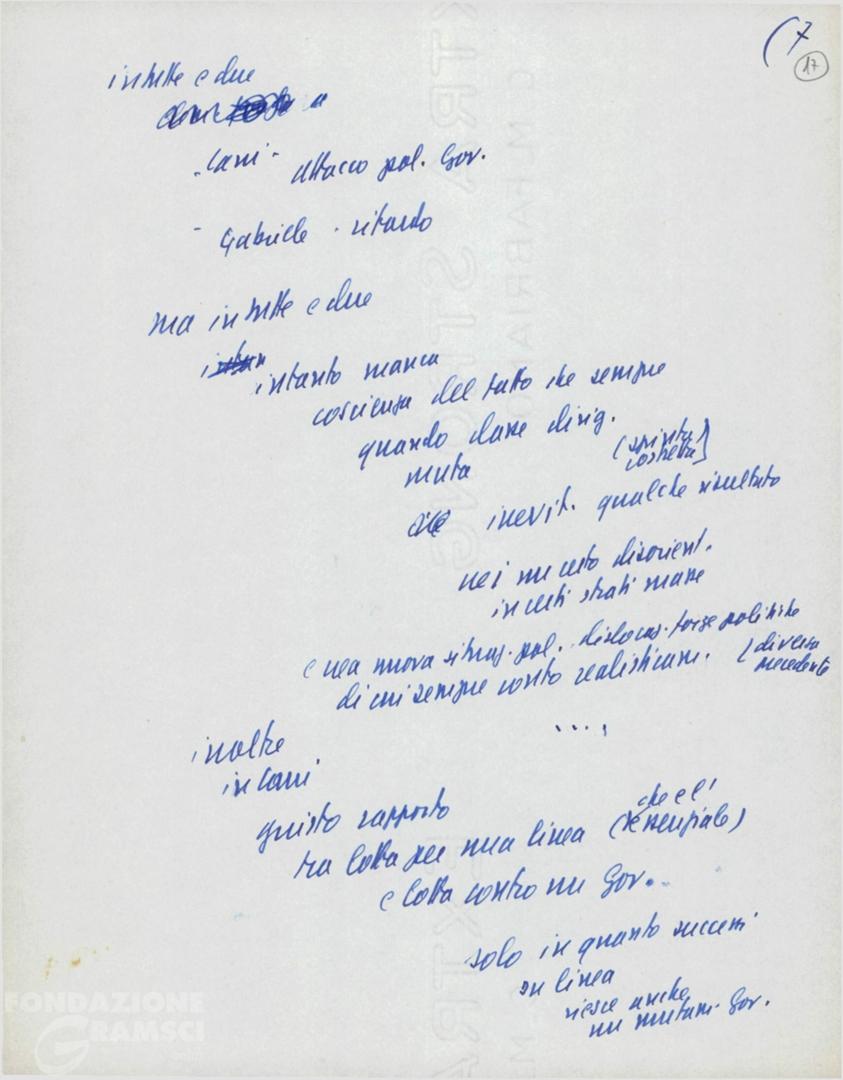 (7
17
in tutte e due
- Cani -
attacco pol. Gov.
- Gabriele - ritardo
ma in tutte e due
intanto manca
coscienza del fatto che sempre
quando classe dirig.
muta
(spinta
costretta)
inevit. qualche risultato
nei un certo disorient.
in certi strati masse
e una nuova situaz. pol. dislocaz. forze politiche
di cui sempre conto realisticam.
(diversa
precedente
....
inoltre
in Cani
giusto rapporto
che è l'
tra lotta per una linea (essenziale)
e lotta contro un Gov.
solo in quanto successi
su linea
riesce anche
un mutam. Gov.
FONDAZIONE
GRAMSCI
EXTRA STRONG
C.M.FABRIANO
EXTRA